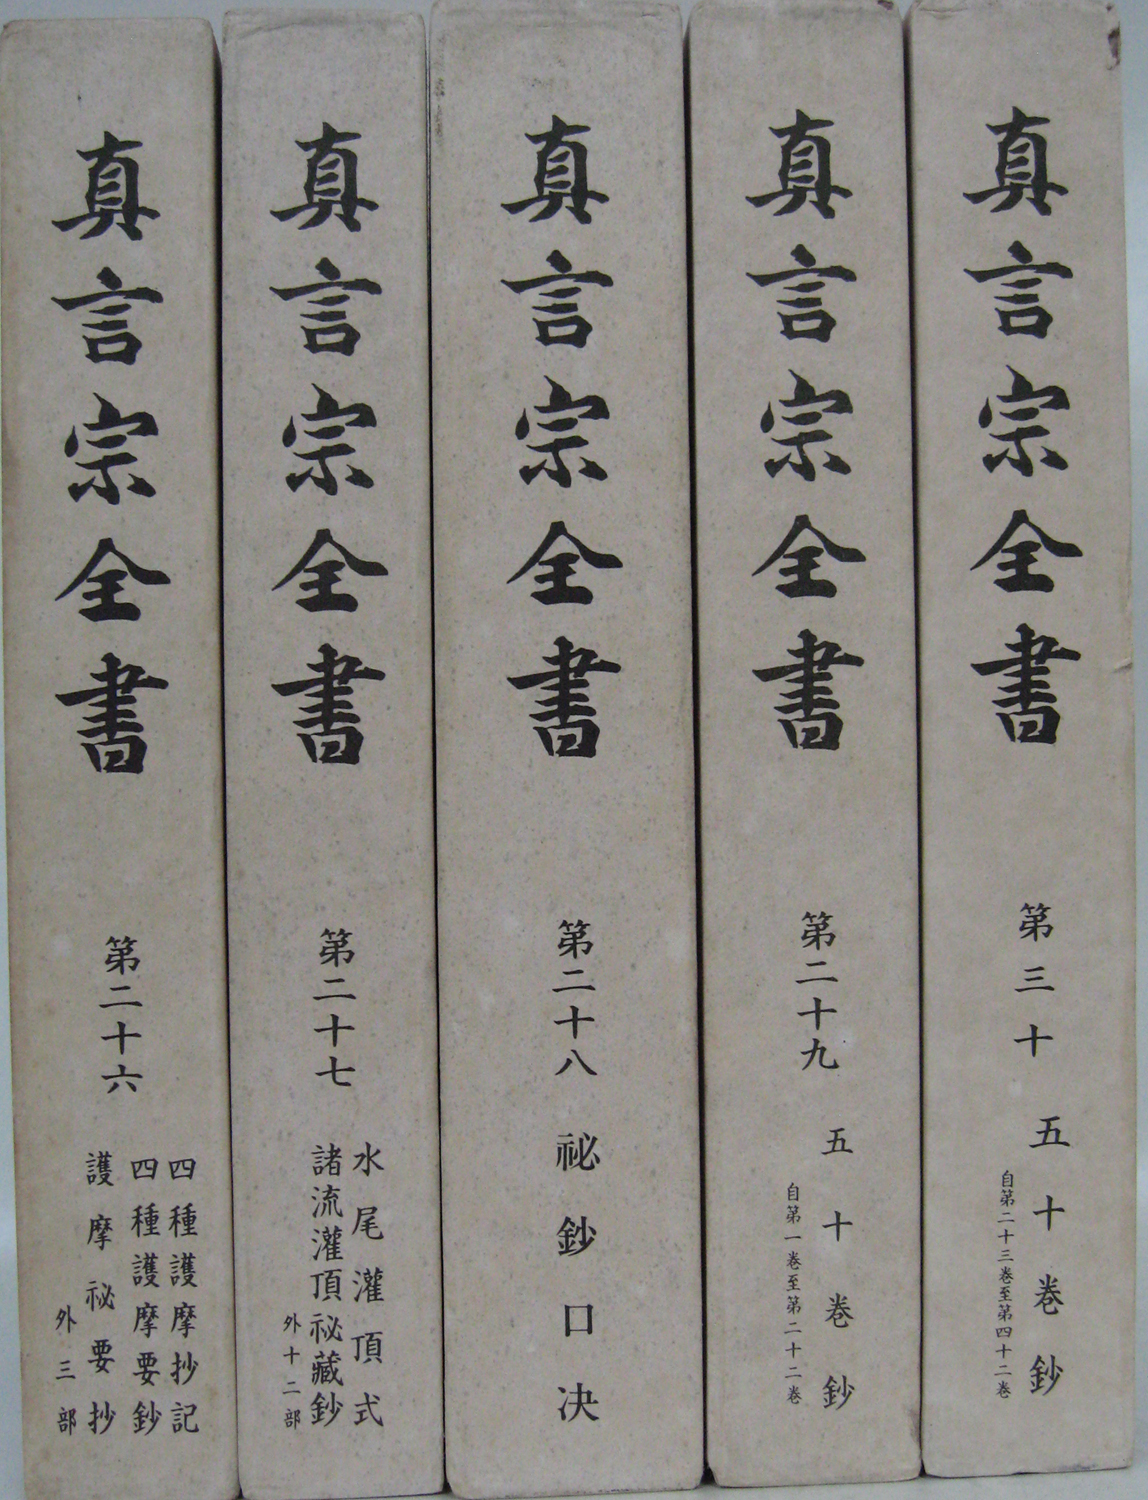 真言宗全書
第二十六
四種護摩抄記
四種護摩要鈔
護摩祕要抄
外三部
真言宗全書
第二十七
水尾灌頂式
諸流灌頂祕藏鈔
外十二部
真言宗全書
第二十八
祕鈔口决
真言宗全書
第二十九
五十卷鈔
自第一卷至第二十二卷
真言宗全書
第三十
五十卷鈔
自第二十三卷至第四十二卷